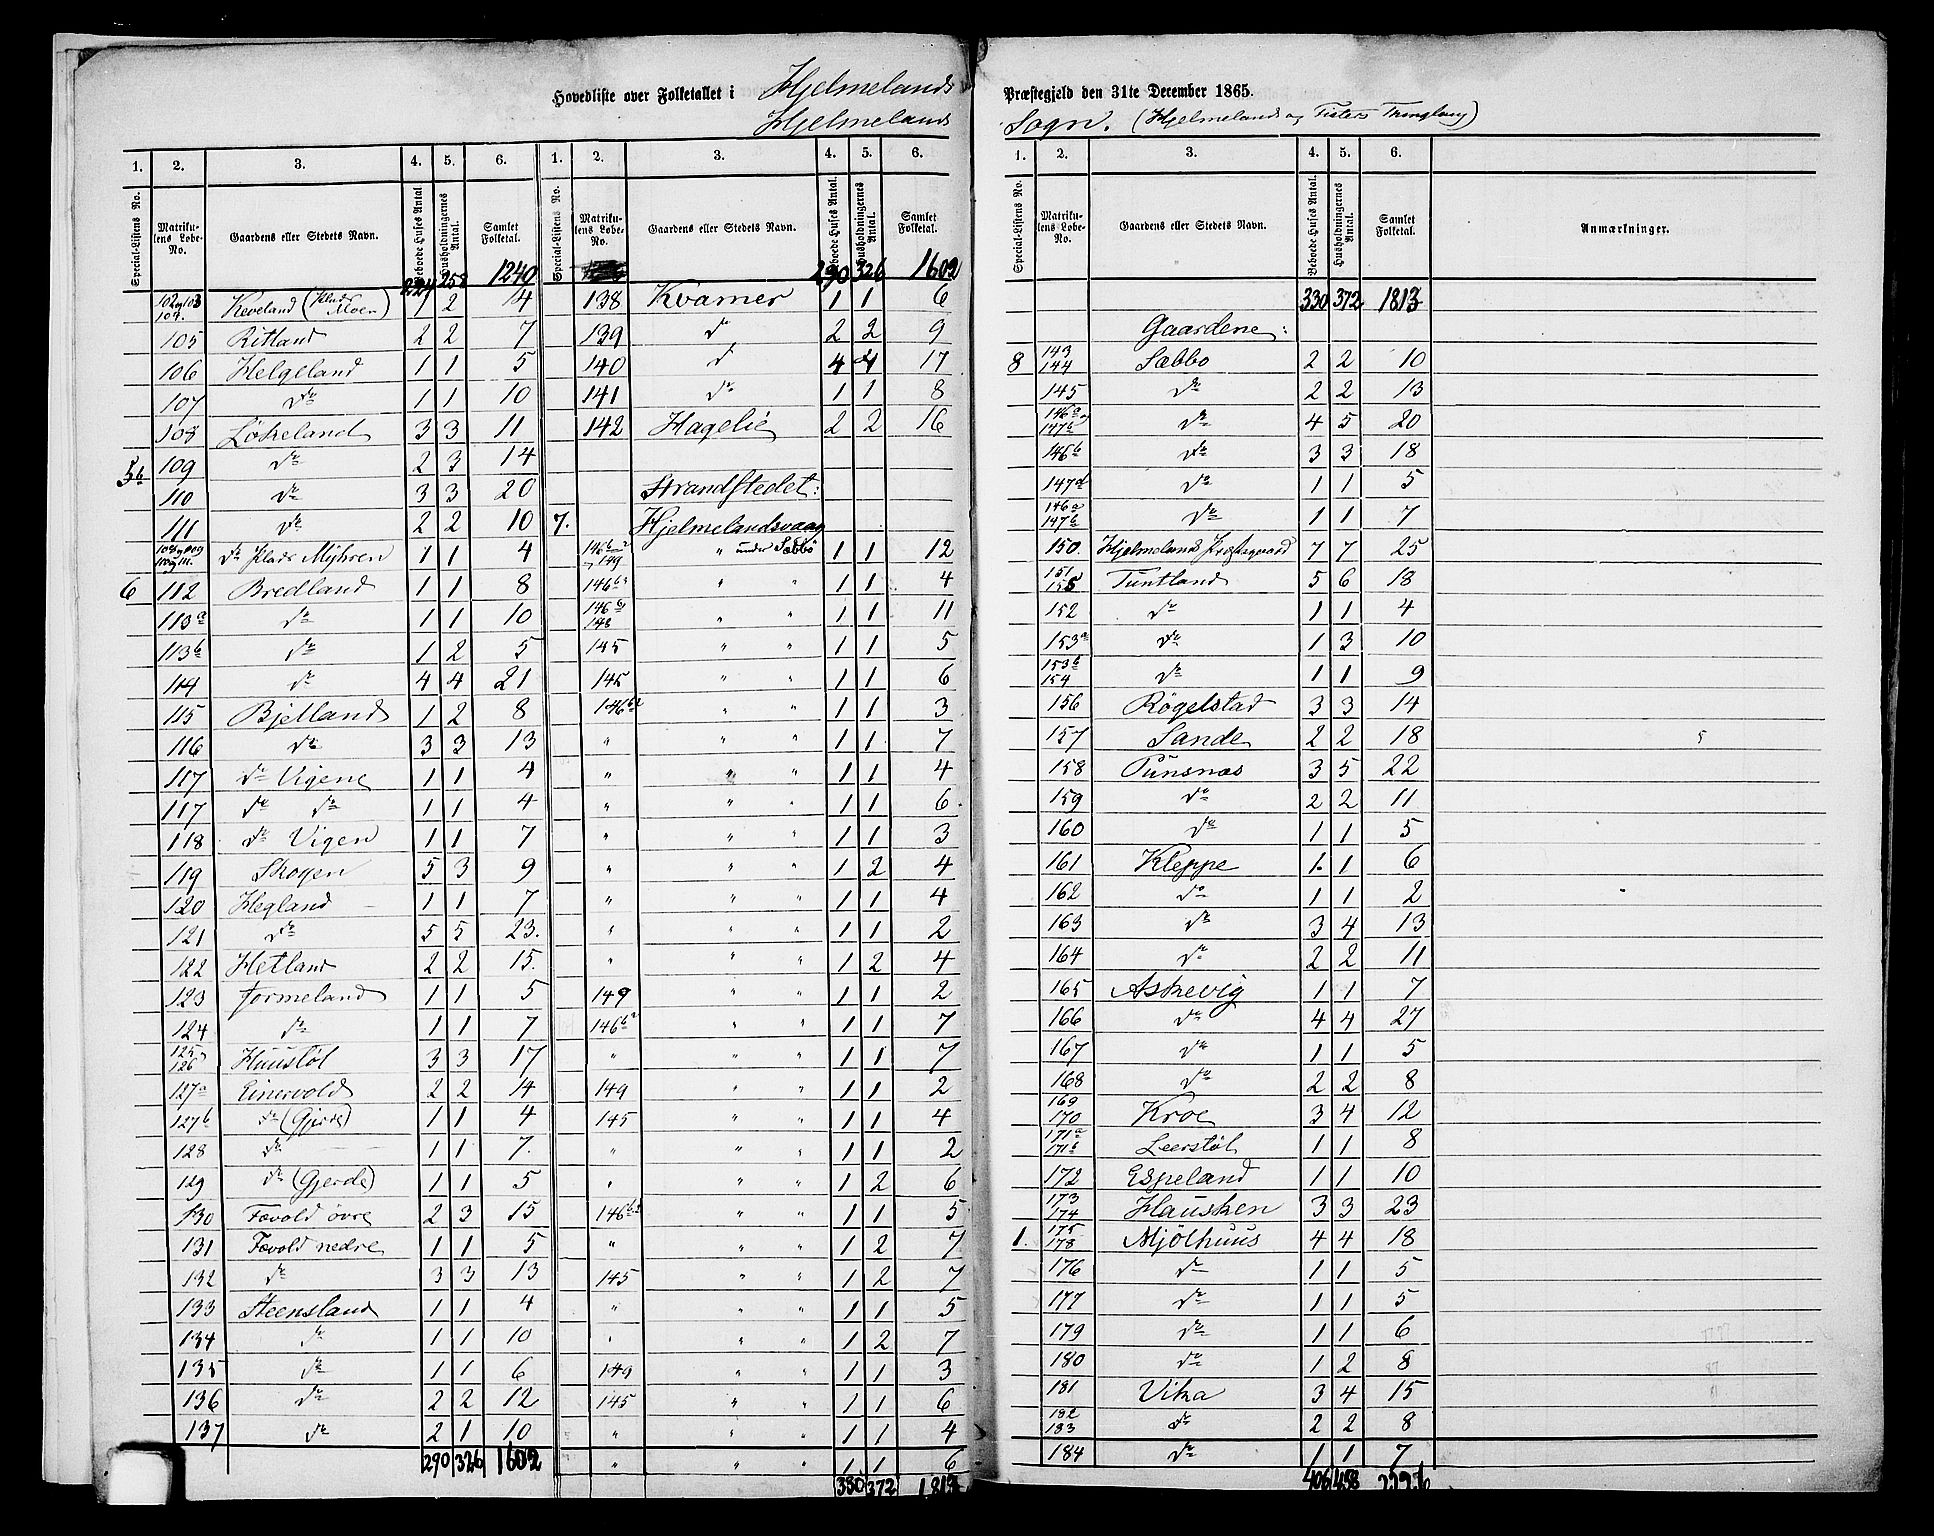 Hovedliste over Folketallet i Hjelmelands Præstegjeld den 31te December 1865.
Hjelmelands Sogn. (Hjelmelands og Fisters Thinglaug)
1. 2. 3. 4. 5. 6. 1. 2. 3. 4. 5. 6.
Special-Listens No. Matrikulens Løbe-No. Gaardens eller Stedets Navn. Beboede Huses Antal. Husholdningernes Antal. Samlet Folketal. Special-Listens No. Matrikulens Løbe-No. Gaardens eller Stedets Navn. Beboede Huses Antal. Husholdningernes Antal. Samlet Folketal.
258 1240
102 og 103 104. Keveland (Plads Moen) 1 2 4
105 Ritland 2 2 7
106 Helgeland 1 1 5
107 do 1 1 10
108 Løkeland 3 3 11
5b 109 do 2 3 14
110 do 3 3 20
111 do 2 2 10
do Plads Myhren 1 1 4
6 112 Bredland 1 1 8
113a do 1 1 10
113b do 1 2 5
114 do 4 4 21
115 Bjelland 1 2 8
116 do 3 3 13
117 do Vigene 1 1 4
117 do do 1 1 4
118 do Vigen 1 1 7
119 Skogen 5 3 9
120 Hegland 1 1 7
121 do 5 5 23.
122 Hetland 2 2 15.
123 Jormeland 1 1 5
124 do 1 1 7
125 og 126 Huustøl 3 3 17
127a Einervold 2 2 14
127b do (Gjerde) 1 1 4
128 do 1 1 7.
129 do (Gjerde) 1 1 5
130 Fævold øvre 2 3 15
131 Fævold nedre 1 1 5
132 do 3 3 13
133 Steensland 1 1 4
134 do 1 1 10
135 do 1 1 6
136 do 2 2 12
137 do 2 1 10
290 326 1602
290 326 1602
138 Kvamer 1 1 6
139 do 2 2 9
140 do 4 4 17
141 do 1 1 8
142 Hagelie 2 2 16
Strandstedet:
7. Hjelmelandsvaag
146b2 og 149 " under Sæbbø 1 1 12
146b2 " " 1 1 4
146b2 148 " " 1 1 11
145 " " 1 1 5
145 " " 1 1 6
146b2 " " 1 1 3
" " " 1 1 7
" " " 1 1 4
" " " 1 1 6.
" " " 1 1 3
" " " 1 2 4
" " " 1 1 4
" " " 1 1 2
" " " 1 2 4
149 " " 1 1 2
146b2 " " 1 1 7
" " " 1 1 7
149 " " 1 1 2
145 " " 1 1 4
" " " 1 1 2
" " " 1 2 6
146b2 " " 1 1 5
" " " 1 2 7
145 " " 1 2 7
" " " 1 1 5
" " " 1 2 7
149 " " 1 1 3
145 " " 1 1 6
" " " 1 1 4
" " " 1 1 6
330 372 1813
1. 2. 3. 4. 5. 6.
Special-Listens No. Matrikulens Løbe-No. Gaardens eller Stedets Navn. Beboede Huses Antal. Husholdningernes Antal. Samlet Folketal. Anmærkninger.
330 372 1813
Gaardene:
8 143 144 Sæbbo 2 2 10
145 do 2 2 13
146a og 147c do 4 5 20
146b do 3 3 18
147d do 1 1 5
146a 147b do 1 1 7
150. Hjelmeland Præstegaard 7 7 25
151 155 Tuntland 5 6 18
152 do 1 1 4
153a do 1 3 10
153b 154 do 1 1 9
156 Røgelstad 3 3 14
157 Sande 2 2 18 5
158 Punsnæs 3 5 22
159 do 2 2 11
160 do 1 1 5
161 Kleppe 1. 1 6
162 do 1 1 2
163 do 3 4 13
164 do 2 2 11
165 Askevig 1 1 7
166 do 4 4 27
167 do 1 1 5
168 do 2 2 8
169 170 Kroe 3 4 12
171a 171b Leerstøl 1 1 8
172 Espeland 1 1 10
173 174 Hausken 3 3 23
1. 175 178 Mjølhuus 4 4 18
176 do 1 1 5
177 do 1 1 5
179 do 1 1 6
180 do 1 2 8
181 Vika 3 4 15
182 183 do 2 2 8
184 do 1 1 7
406 458